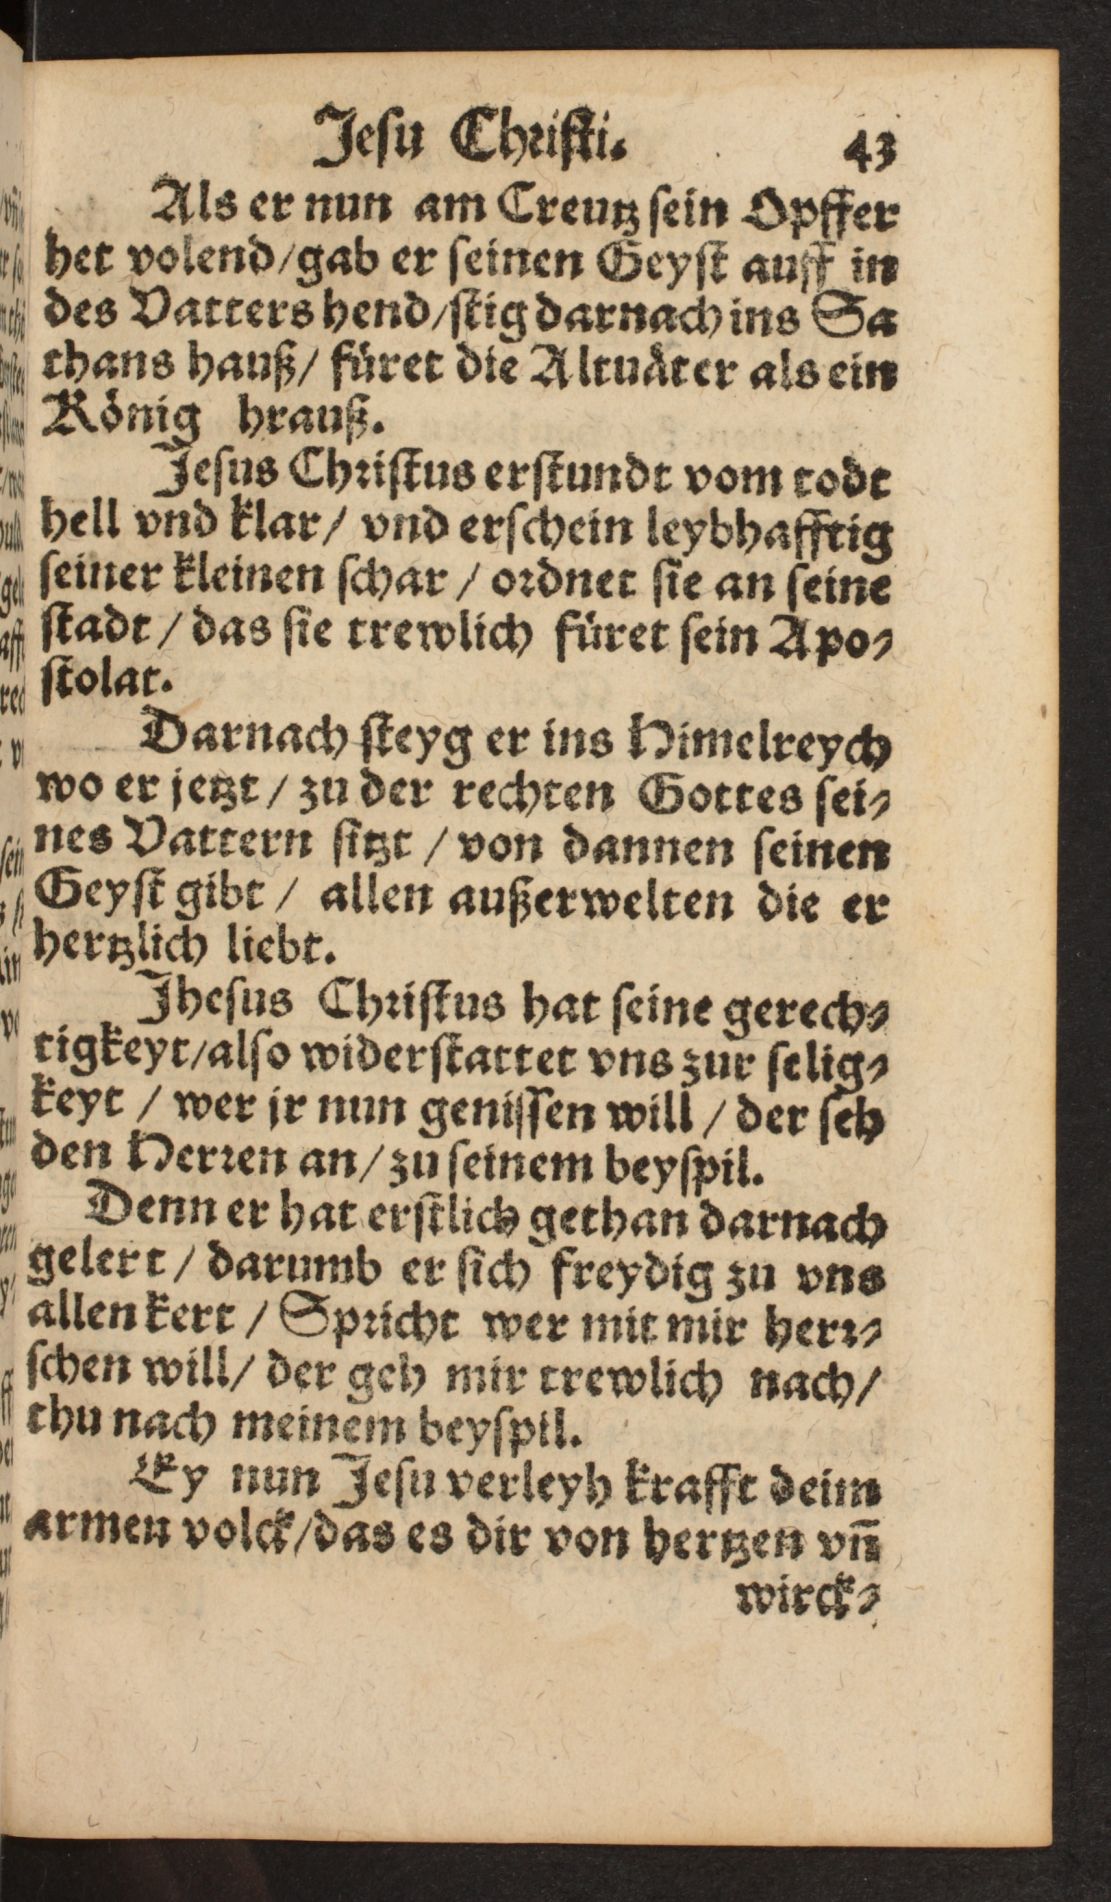 Jesu Christi. 43
Als er nun am Creutz sein Opffer
het volend/gab er seinen Geyst auff in
des Vatters hend/stig darnach ins Sa
thans hauß/ füret die Altuäter als ein
König hrauß.
Jesus Christus erstundt vom todt
hell vnd klar/ vnd erschein leybhafftig
seiner kleinen schar / ordnet sie an seine
stadt / das sie trewlich füret sein Apo⸗
stolat.
Darnach steyg er ins Himelreych
wo er jetzt / zu der rechten Gottes sei⸗
nes Vattern sitzt / von dannen seinen
Geyst gibt / allen außerwelten die er
hertzlich liebt.
Jhesus Christus hat seine gerech⸗
tigkeyt/also widerstattet vns zur selig⸗
keyt / wer jr nun genissen will / der seh
den Herren an/ zu seinem beyspil.
Denn er hat erstlich gethan darnach
gelert / darumb er sich freydig zu vns
allen kert / Spricht wer mit mir herr⸗
schen will/ der geh mir trewlich nach/
thu nach meinem beyspil.
Ey nun Jesu verleyh krafft deim
armen volck/das es dir von hertzen vn̄
wirck⸗